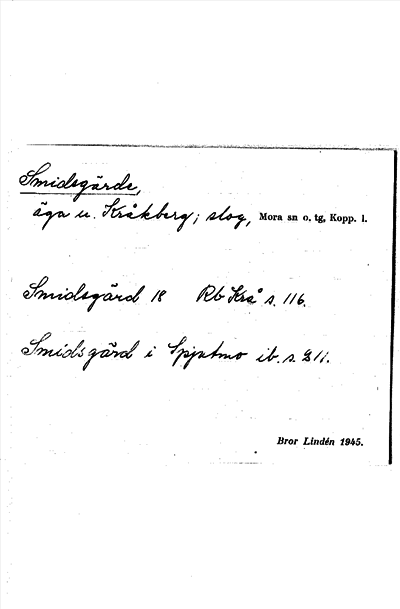 Smidsgärde,
äga u. Kråkberg; slog, Mora sn o. tg, Kopp. l.
Smidsgärd 18 Rb Krå s. 116.
Smidsgärd i Spjutmo ib. s. 211.
Bror Lindén 1945.